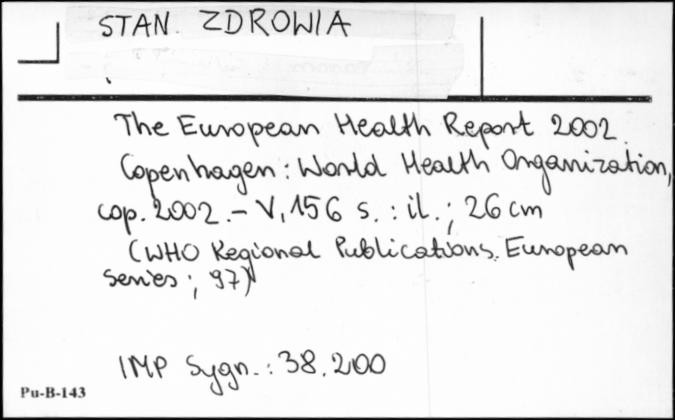 STAN ZDROWIA
The European Health Report 2002.
Copenhagen : World Health Organization,
cop. 2002. – V, 156 s. : il. ; 26 cm
(WHO Regional Publications. European
Series ; 97)
IMP Sygn. : 38.200
Pu-B-143